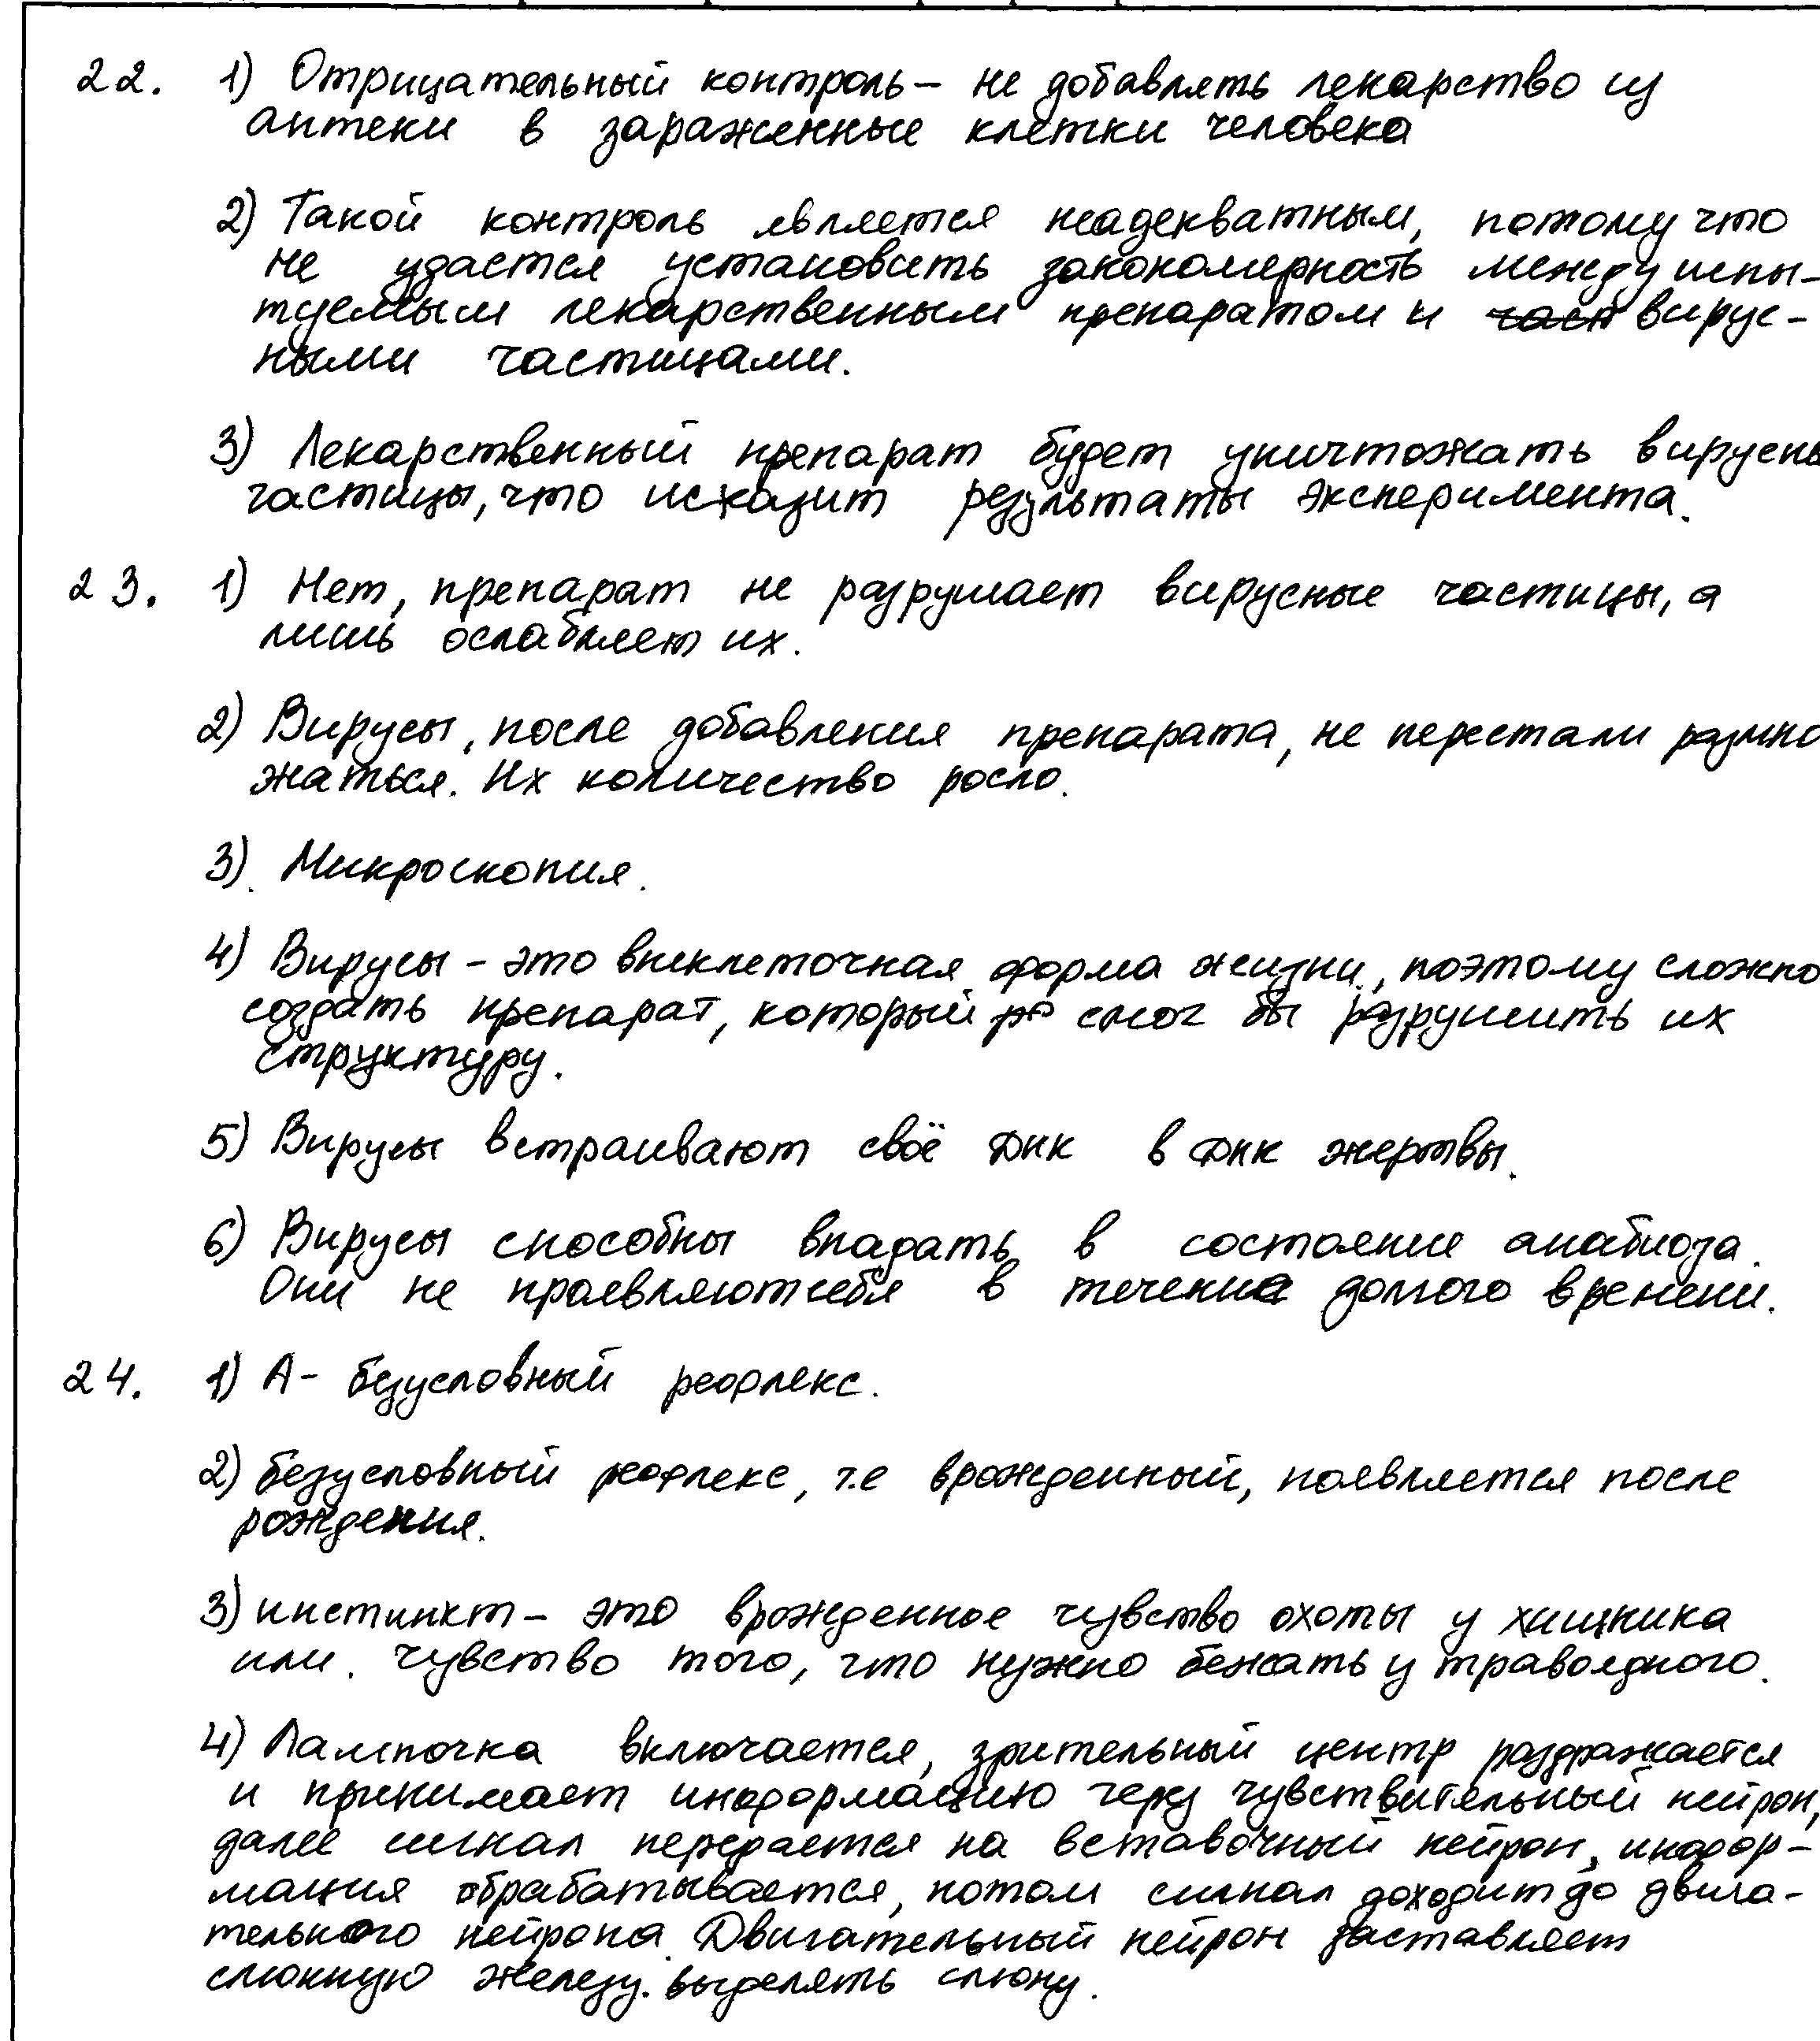 22. 1) Отрицательный контроль – не добавлять лекарство из
аптеки в зараженные клетки человека
2) Такой контроль является неадекватным, потому что
не удается установить закономерность между испы-
туемым лекарственным препаратом и вирус-
ными частицами.
3) Лекарственный препарат будет уничтожать вирусны
частицы, что исказит результаты эксперимента.
23. 1) Нет, препарат не разрушает вирусные частицы, а
лишь ослабляет их.
2) Вирусы, после добавления препарата, не перестали размно
жаться. Их количество росло.
3) Микроскопия.
4) Вирусы – это внеклеточная форма жизни, поэтому сложно
создать препарат, который смог бы разрушить их
структуру.
5) Вирусы встраивают своё ДНК в ДНК жертвы.
6) Вирусы способны впадать в состояние анабиоза.
Они не проявляют себя в течение долгого времени.
24. 1) А – безусловный рефлекс.
2) безусловный рефлекс, т.е врожденный, появляется после
рождения.
3) инстинкт – это врожденное чувство охоты у хищника
или чувство того, что нужно бежать у травоядного.
4) Лампочка включается, зрительный центр раздражается
и принимает информацию через чувствительный нейрон,
далее сигнал передается на вставочный нейрон, инфор-
мация обрабатывается, потом сигнал доходит до двига-
тельного нейрона. Двигательный нейрон заставляет
слюнную железу выделять слюну.